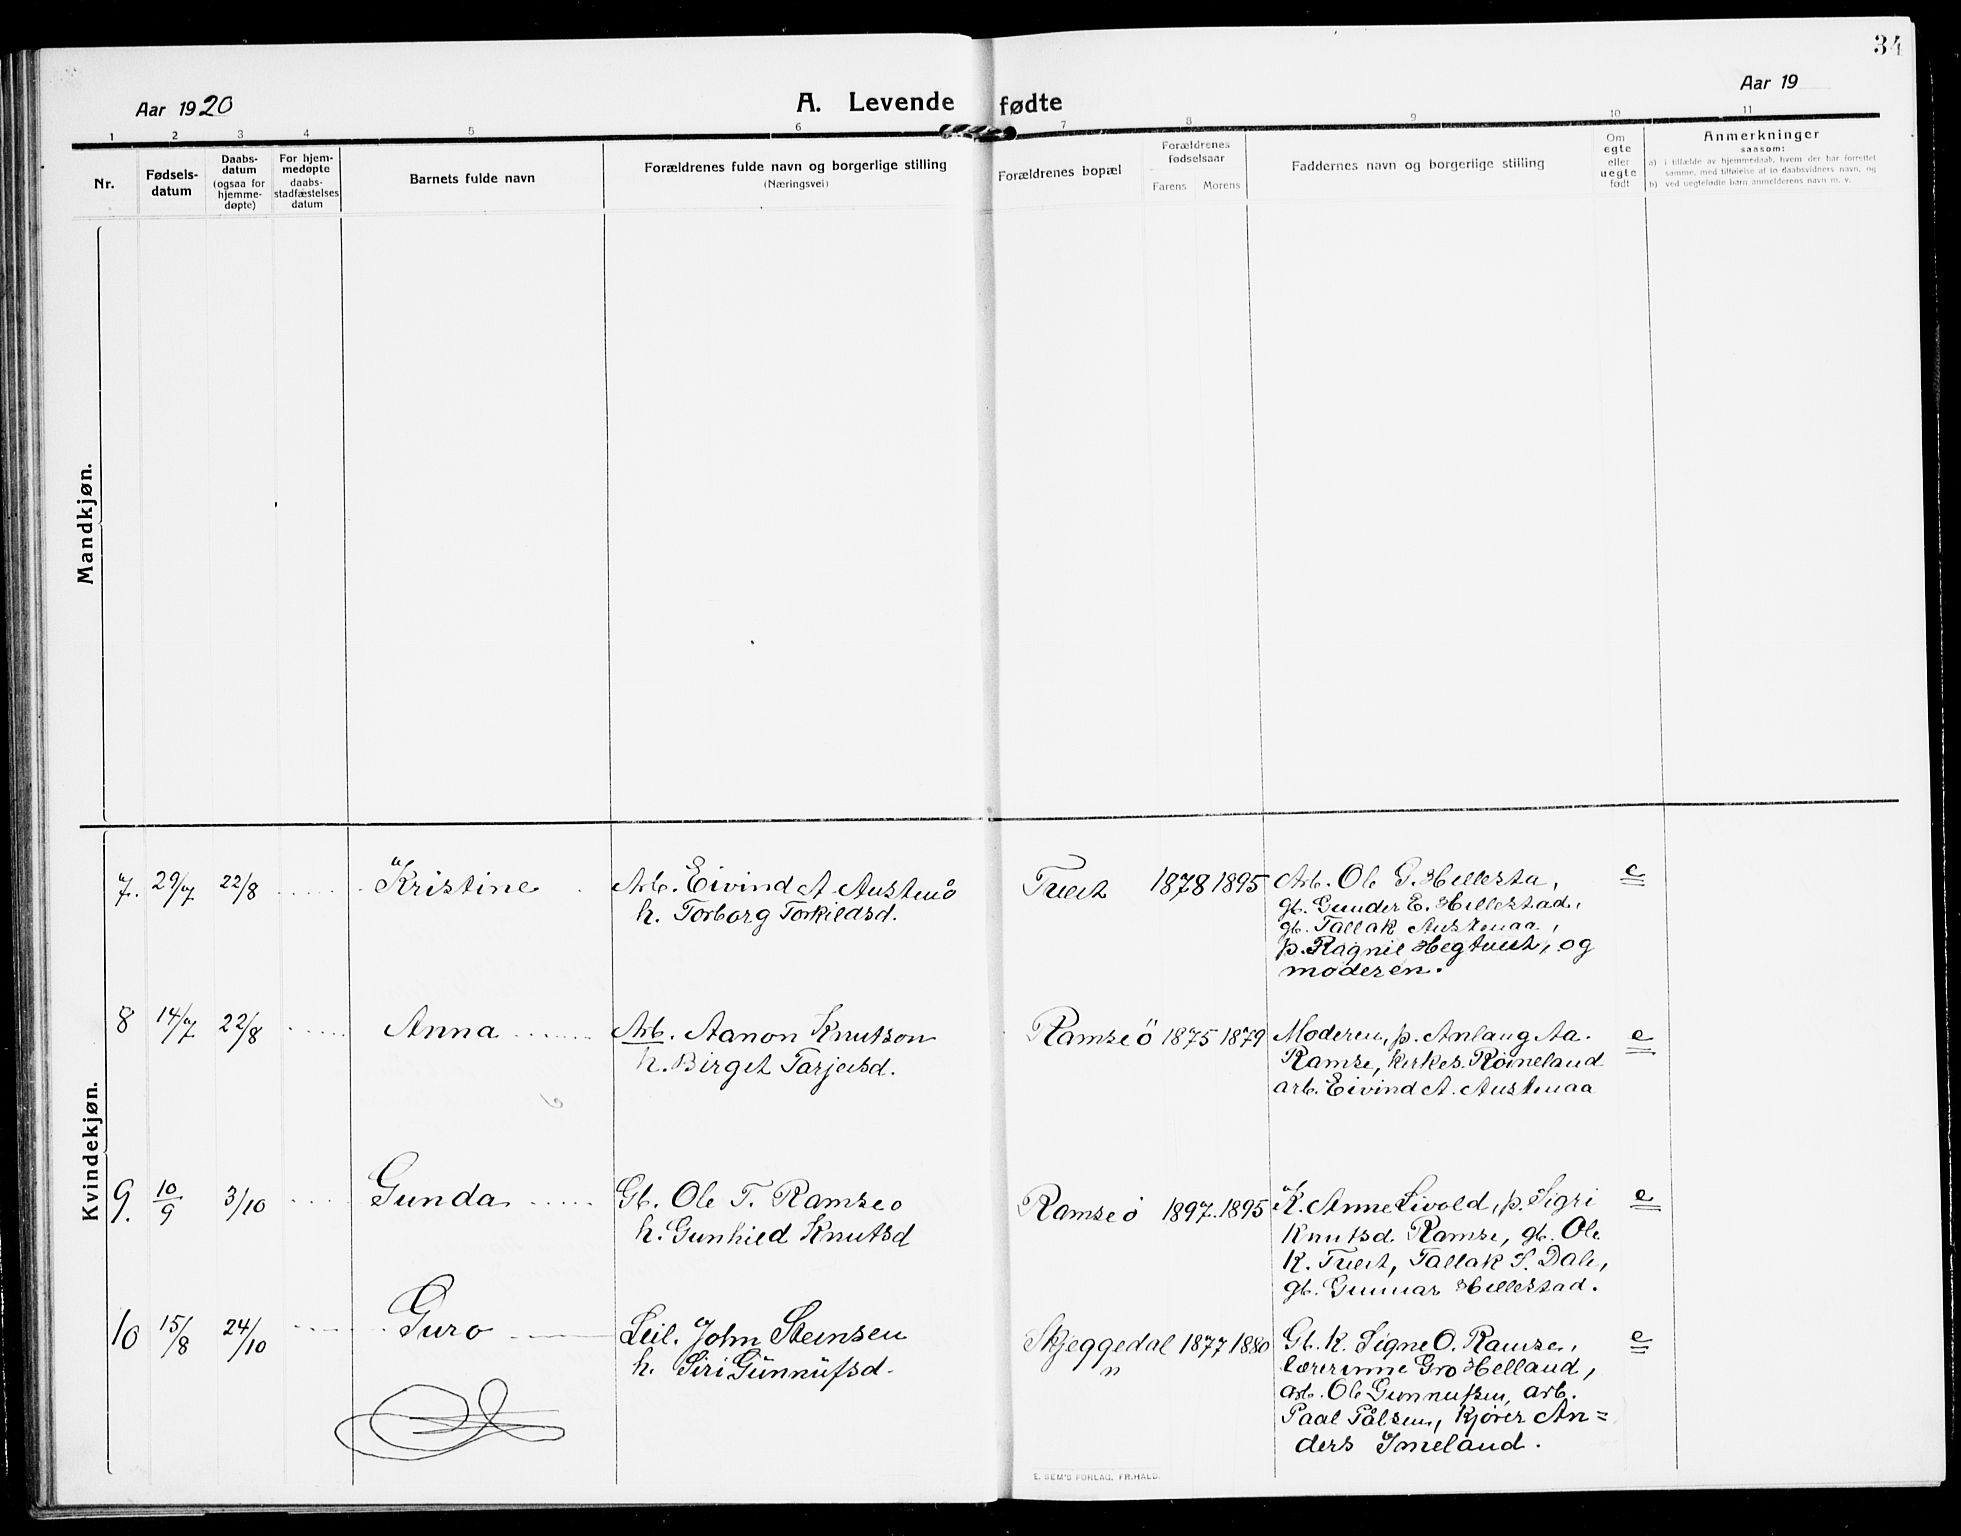 34
Aar 1920
A. Levende fødte
Aar 19
1 2 3 4 5 6 7 8 9 10 11
Nr.
Fødsels-
datum
Daabs-
datum
(ogsaa for
hjemme-
døpte)
For hjem-
medøpte
daabs-
stadfæstelses
datum
Barnets fulde navn
Forældrenes fulde navn og borgerlige stilling
(Næringsvei)
Forældrenes bopæl
Forældrenes
fødselsaar
Farens Morens
Faddernes navn og borgerlige stilling
Om
egte
eller
uegte
født
Anmerkninger
saasom:
a) i tilfælde av hjemmedaab, hvem der har forrettet
samme, med tilføielse af to daabsvidners navn, og
b) ved uegtefødte barn anmelderens navn m. v.
Mandkjøn.
Kvindekjøn.
7. 29/7 22/8 Kristine
Arb. Eivind A Austenå
h. Torborg Torkildsd.
Tveit 1878 1895
Arb. Ole G. Hillesta,
gb. Gunder E. Hillestad,
gb. Tallak Austenaa,
p. Ragnil Hegtveit, og
moderen.
e
8 14/7 22/8 Anna
Arb. Aanon Knutson
h. Birget Tarjeisd.
Ramseö 1875 1879
Moderen, p. Anlaug Aa.
Ramse, kirkes. Röineland
arb. Eivind A. Austenaa
e
9. 10/9 3/10 Gunda
Gb. Ole T. Ramseo
h. Gunhild Knutsd
Ramseö 1897. 1895
K. Anne Livold, p. Sigri
Knutsd. Ramse, gb. Ole
K. Tveit, Tallak S. Dale,
gb. Gunnar Hillestad.
e
10 15/8 24/10 Guro
Leil. John Steinsen
h. Siri Gunnufsd.
Skjeggedal 1877 1880
n
Gb. k. Signe O. Ramse,
lærerinne Gro Helland,
arb. Ole Gunnufsen, arb.
Paal Pålsen, kjörer An=
ders Imeland.
e
E. SEM'S FORLAG, FR.HALD.